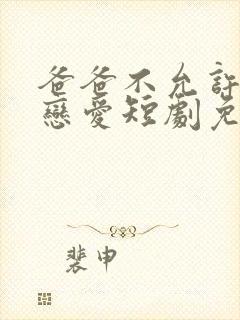 爸爸不允許
戀愛短劇免
裴申